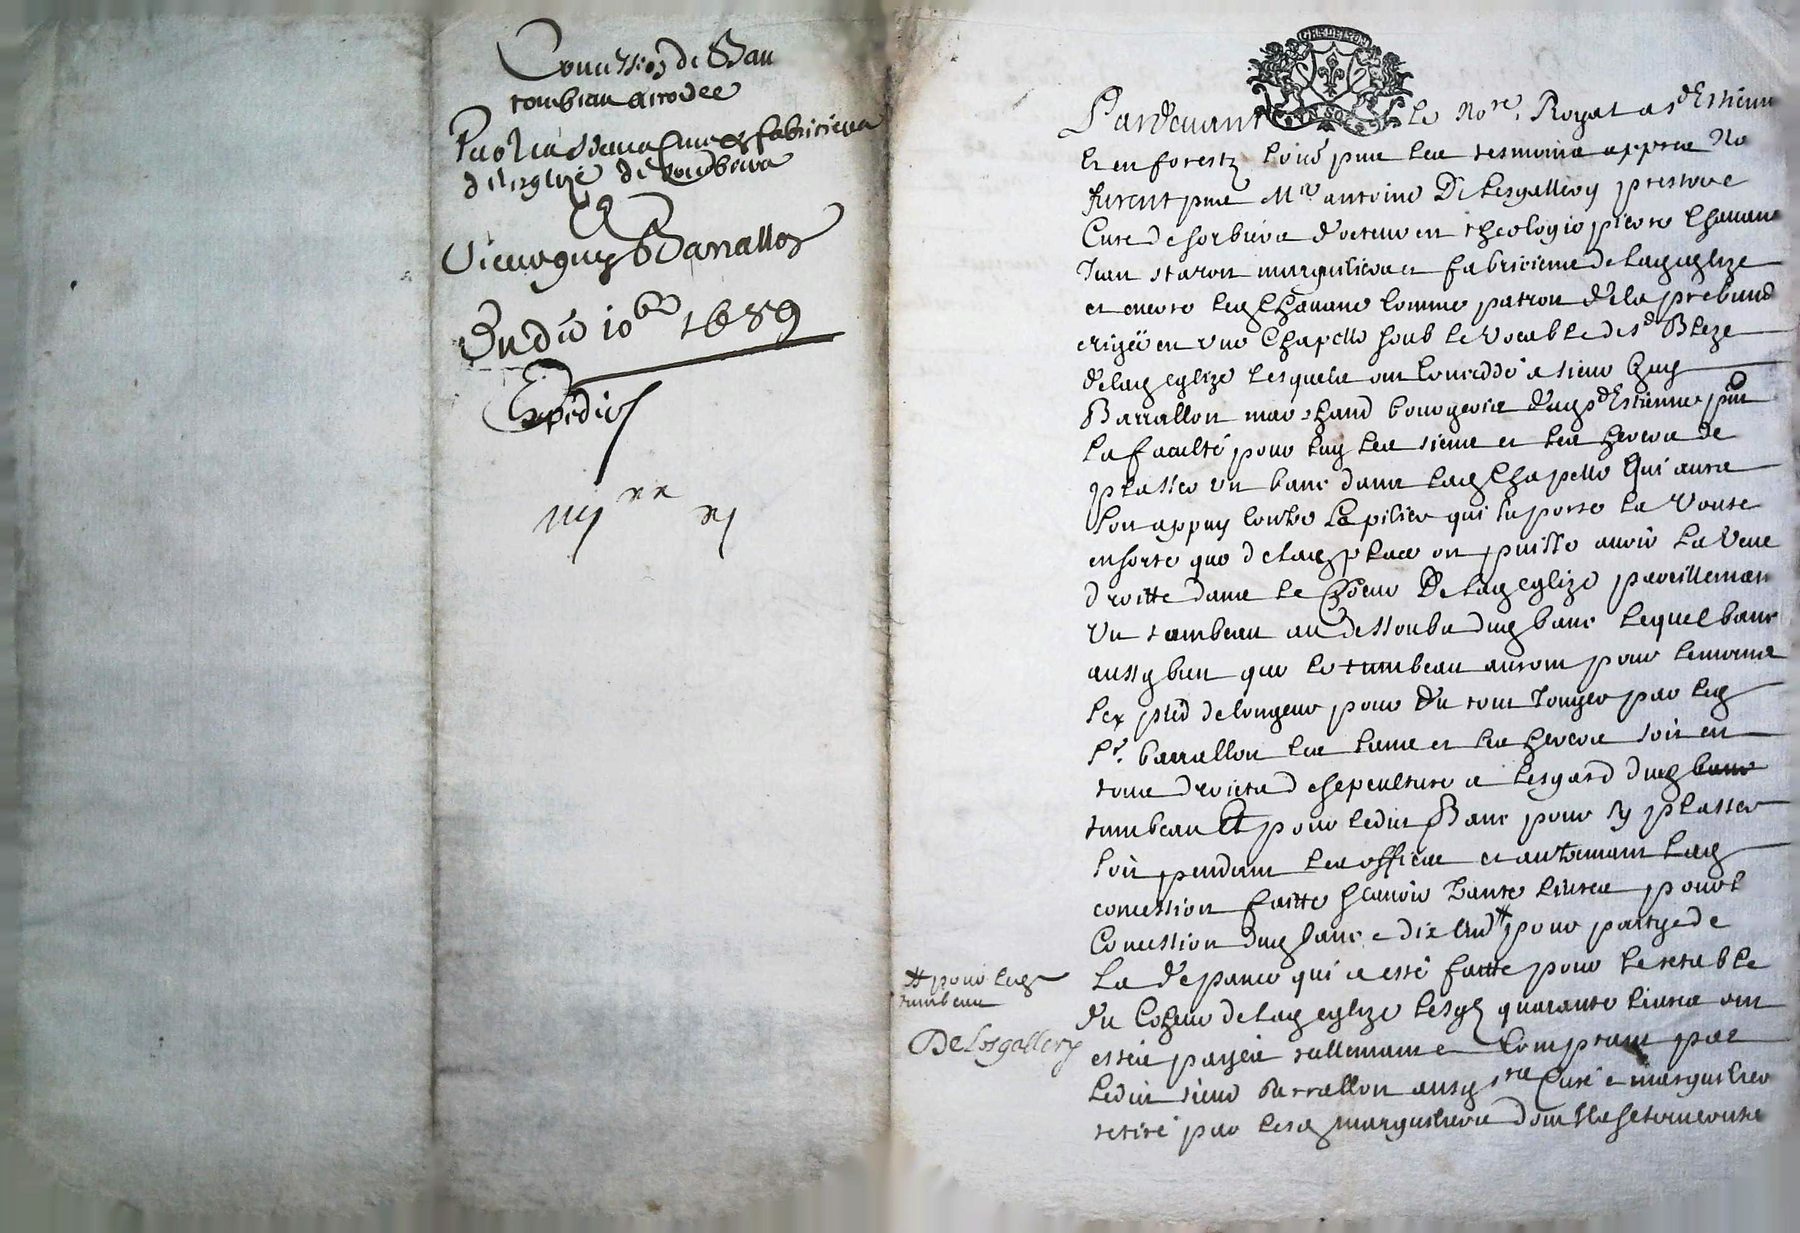 Concession de Ban
tombeau accordee
Par les sieurs Curé et fabriciens
de l'eglize de Sorbiers
a
Sieur guy Barrallon
Du die 10bre 1689
Expedié
GNĒ DE LYON
Pardevant le No.re Royal a st Estienne
et en forestz soubz.né pnt les tesmoins appres No
furent pnts M.re antoine De Lesgallery prestre
Curé de sorbiers docteur en theologie pierre Chauanne
Jean staron marguilliers et fabriciens de lad eglize
et encore led Chauane comme patron de la prebande
erigéé en vne Chapelle soub le vocable de st Bleze
de lad eglize lesquels ont conceddé a sieur Guy
Barrallon marchand bourgeois dud st Estienne pnt
la faculté pour luy les siens et les hoirs de
plasser vn banc dans lad Chapelle qui aura
son appuy contre le pilier qui suporte la voute
en sorte que de lad place on puisse auoir la veue
droitte dans le Choeur de lad eglize pareilleman
vn tombeau au dessoubs dud banc lequel banc
aussy bien que le tumbeau auront pour le moins
sex pied de longeur pour du tout Jouyr par led
sr. barrallon les siens et les hoirs soit en
tous droicts de sepculture a lesgard dud banc
tumbeau Et pour ledit Banc pour sy plasser
soit pendant les offices et autremant lad
concession faitte scauoir trante liures pour l
Concession dud banc e dix liures # pour partye de
la depance qui a esté faitte pour le retable
du Coheur de lad eglize lesd quarante liures ont
estés payés reellemant e comptant par
ledit sieur Barrallon ausd srs Curé e marguilliers
retiré par lesd marguilliers dont Ils se sont contan
# pour led
tumbeau
De Lesgallery